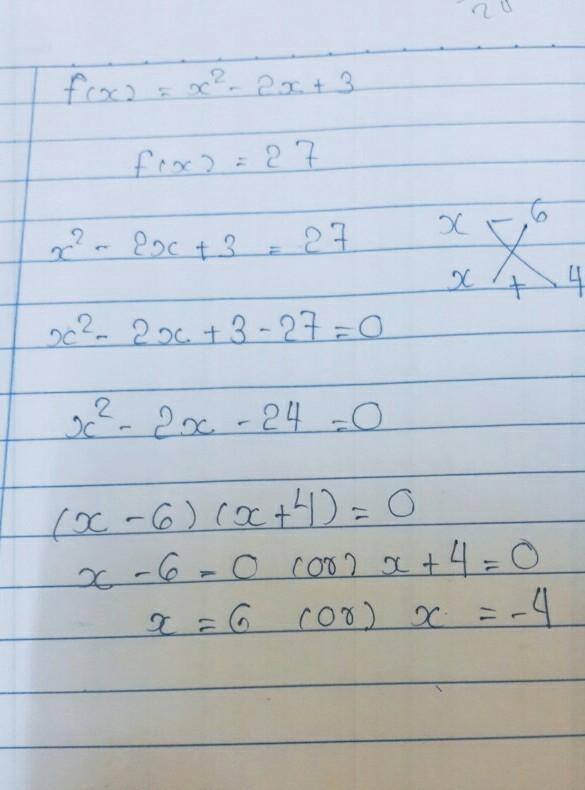 20
f(x) = x² - 2x + 3
f(x) = 27
x² - 2x + 3 = 27
x - 6
x + 4
x² - 2x + 3 - 27 = 0
x² - 2x - 24 = 0
(x - 6) (x + 4) = 0
x - 6 = 0 (or) x + 4 = 0
x = 6 (or) x = -4